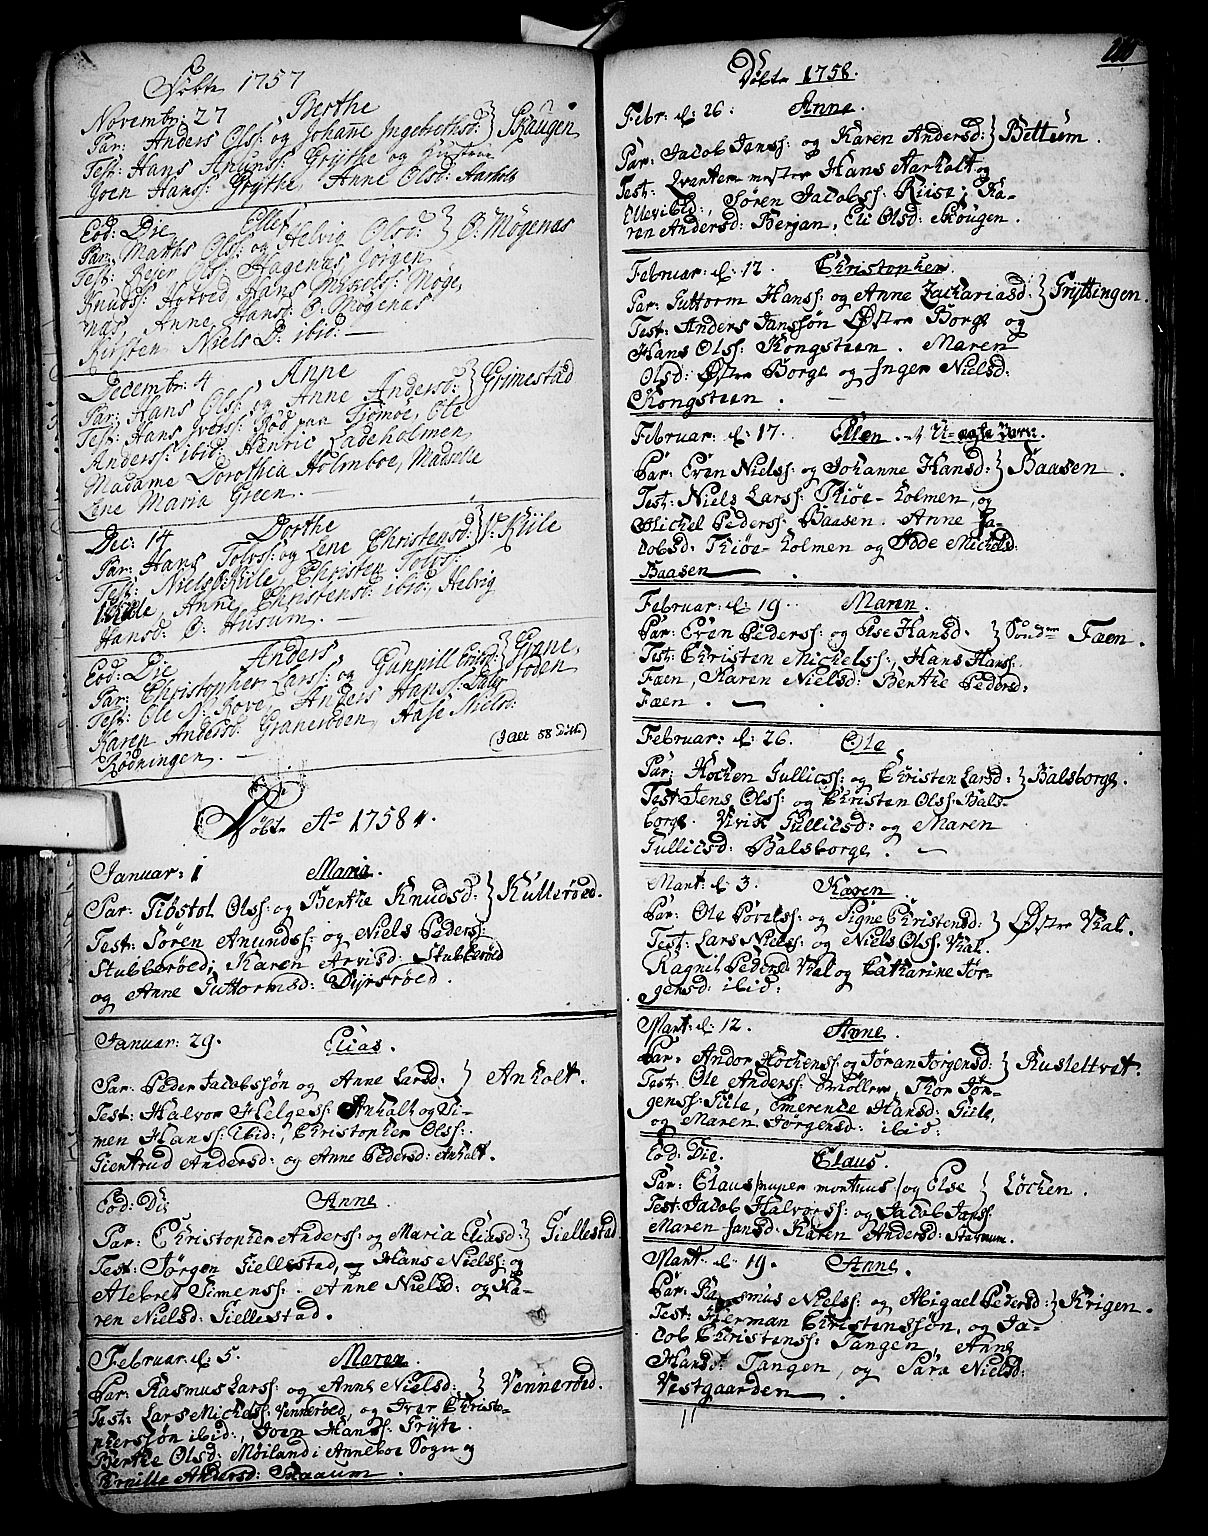 Døbte 1757
Novembr: 27 Berthe
Par: Anders Ols: og Johanne Ingebrethsd: } Skaugen
Test: Hans Amunds: Grythe og Hustrue
Joen Hans: Grythe, Anne Olsd: Aarholt
Eod: Die Ellef
Par: Mathis Ols: og Helvig Olsd: } Ø: Møgenas
Test: Resen Ols: Hagenas Jørgen
Knuds: Hotved Hans Mikels: Møge
nas, Anne Hansd: Ø: Møgenas
Kirsten Niels D: ibid: —
Decembr: 4 Anne
Par: Hans Ols: og Anne Andersd: } Grimestad
Test: Hans Ivers: Bød paa Tiømøe, Ole
Anders: ibid, Henric Ladeholmen
Madame Dorothea Holmboe, Madselle
Lene Maria Green. —
Dec: 14 Dorthe
Par: Hans Tolvs: og Lene Christensd: } V: Kiile
Test: Niels Kiile, Christen Tolvs:
Kiile, Anne Christensd: ibid, Helvig
Hansd: Ø: Husum. —
Eod: Die Anders
Par: Christopher Lars: og Gunnill } Grane
røden
Test: Ole N: Rove, Anders Hans:
Karen Andersd: Granerøden, Aase Nielsd:
Rødningen. — (I alt 58 Døbte)
Døbte Ao 1758.
Januar: 1 Maria.
Par: Tiøstol Ols: og Berthe Knudsd: } Kullerøed.
Test: Søren Anunds: og Niels Peders:
Stubberøed; Karen Arvisd: Stubberøed
og Anne Guttormsd: Dyrsrøed.
Januar: 29. Elias.
Par: Peder Jacobssøn og Anne Larsd: } Anholt.
Test: Halvor Helges: Anholt og Si-
men Hans: ibid:, Christopher Ols:.
Giertrud Andersd: og Anne Pedersd: Anholt.
Eod: Die Anne
Par: Christopher Anders: og Maria Eliasd: } Giellestad.
Test: Jørgen Giellestad, Hans Niels: og
Alebret Simens: . Anne Nielsd: og Ka-
ren Nielsd: Giellestad.
Februar: d: 5. Maren
Par: Rasmus Lars: og Anne Nielsd: } Vennerøed.
Test: Lars Michels: Vennerøed, og Iver Christo-
phersøn ibid:, Joen Hans: Fryte.
Berthe Olsd: Møiland i Anneboe Sogn og
Pernille Andersd: Raaum.
Døbte 1758.
Febr: d: 26: Anne.
Par: Jacob Jans: og Karen Andersd: } Bettum.
Test: Qvartermester Hans Aarholt og
Ellevibld:, Søren Jacobs: Riise; Ka-
ren Andersd: Berjan, Eli Olsd: Skougen.
Februar: d: 12. Christopher
Par: Guttorm Hans: og Anne Zachariasd: } Gryttingen.
Test: Anders Janssøn Østre Borge og
Hans Ols: Kongsteen. Maren
Olsd: Østre Borge og Inger Nielsd:
Kongsteen. —
Februar: d: 17. Ellen.
Par: Even Niels: og Johanne Hansd: } Baasen.
Test: Niels Lars: Thiøe-holmen, og
Michel Peders: Baasen. Anne Ja-
cobsd: Thiøe-holmen og Idde Michelsd:
Baasen.
Februar: d: 19. Maren.
Par: Even Peders: og Else Hansd: } Søndre Faen.
Test: Christen Michels:, Hans Hans:
Faen, Karen Nielsd: Berthe Pedersd:
Faen. —
Februar: d: 26. Ole
Par: Hochen Gullics: og Christen Larsd: } Balsborge.
Test: Jens Ols: og Christen Ols: Bals-
borge. Vivik Gullicsd: og Maren
Gullicsd: Balsborge. —
Mart: d: 3. Karen
Par: Ole Povels: og Signe Christensd: } Østre Vkal.
Test: Lars Niels: og Niels Ols: Vkal.
Ragnil Pedersd: Vkal og Catharine Jør-
gensd: ibid:
Mart: d: 12. Anne.
Par: Andor Hochens: og Jøran Jørgensd: } Rusteltvet.
Test: Ole Anders: Møller, Thor Jør-
gens: Tiile, Emerence Hansd: Tiile,
og Maren Jørgensd: ibid:
Eod: Die. Claus.
Par: Claus /nuper mortuus/ og Else } Løchen.
Test: Jacob Halvors: og Jacob Jans:
Maren Jansd: Karen Andersd: Starum.
Mart: d: 19. Anne.
Par: Rasmus Niels: og Abigael Pedersd: } Krigen.
Test: Herman Christenssøn, og Ja-
cob Christens: Tangen, Anne
Hansd: Tangen, og Sara Nielsd:
Vestgaarden.